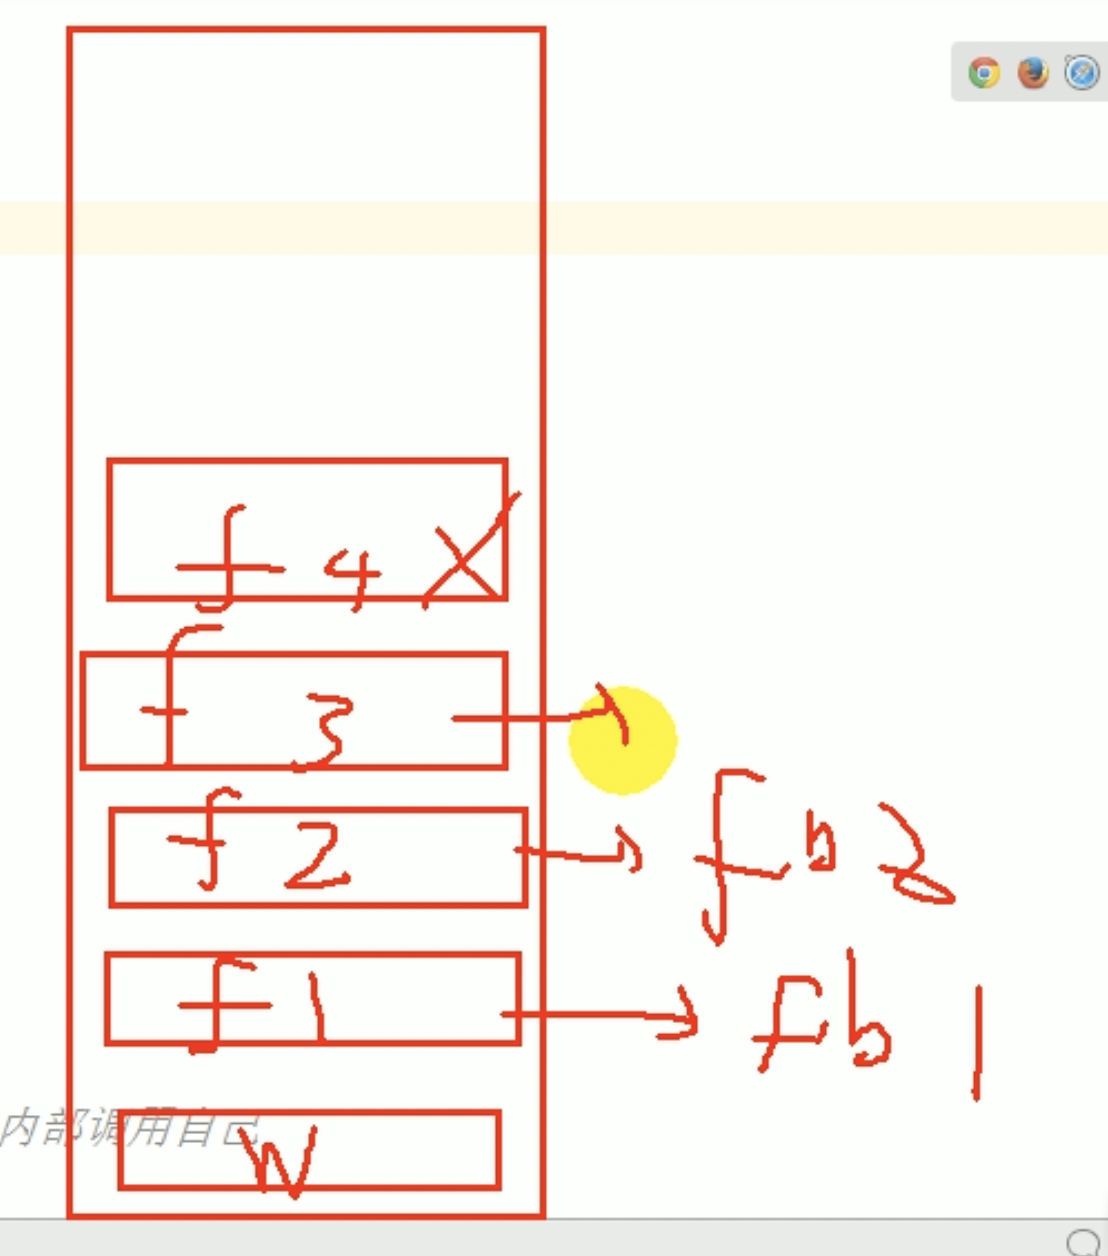 f 4 X
f 3
f 2 fb2
f 1 fb 1
内部调用自己
W